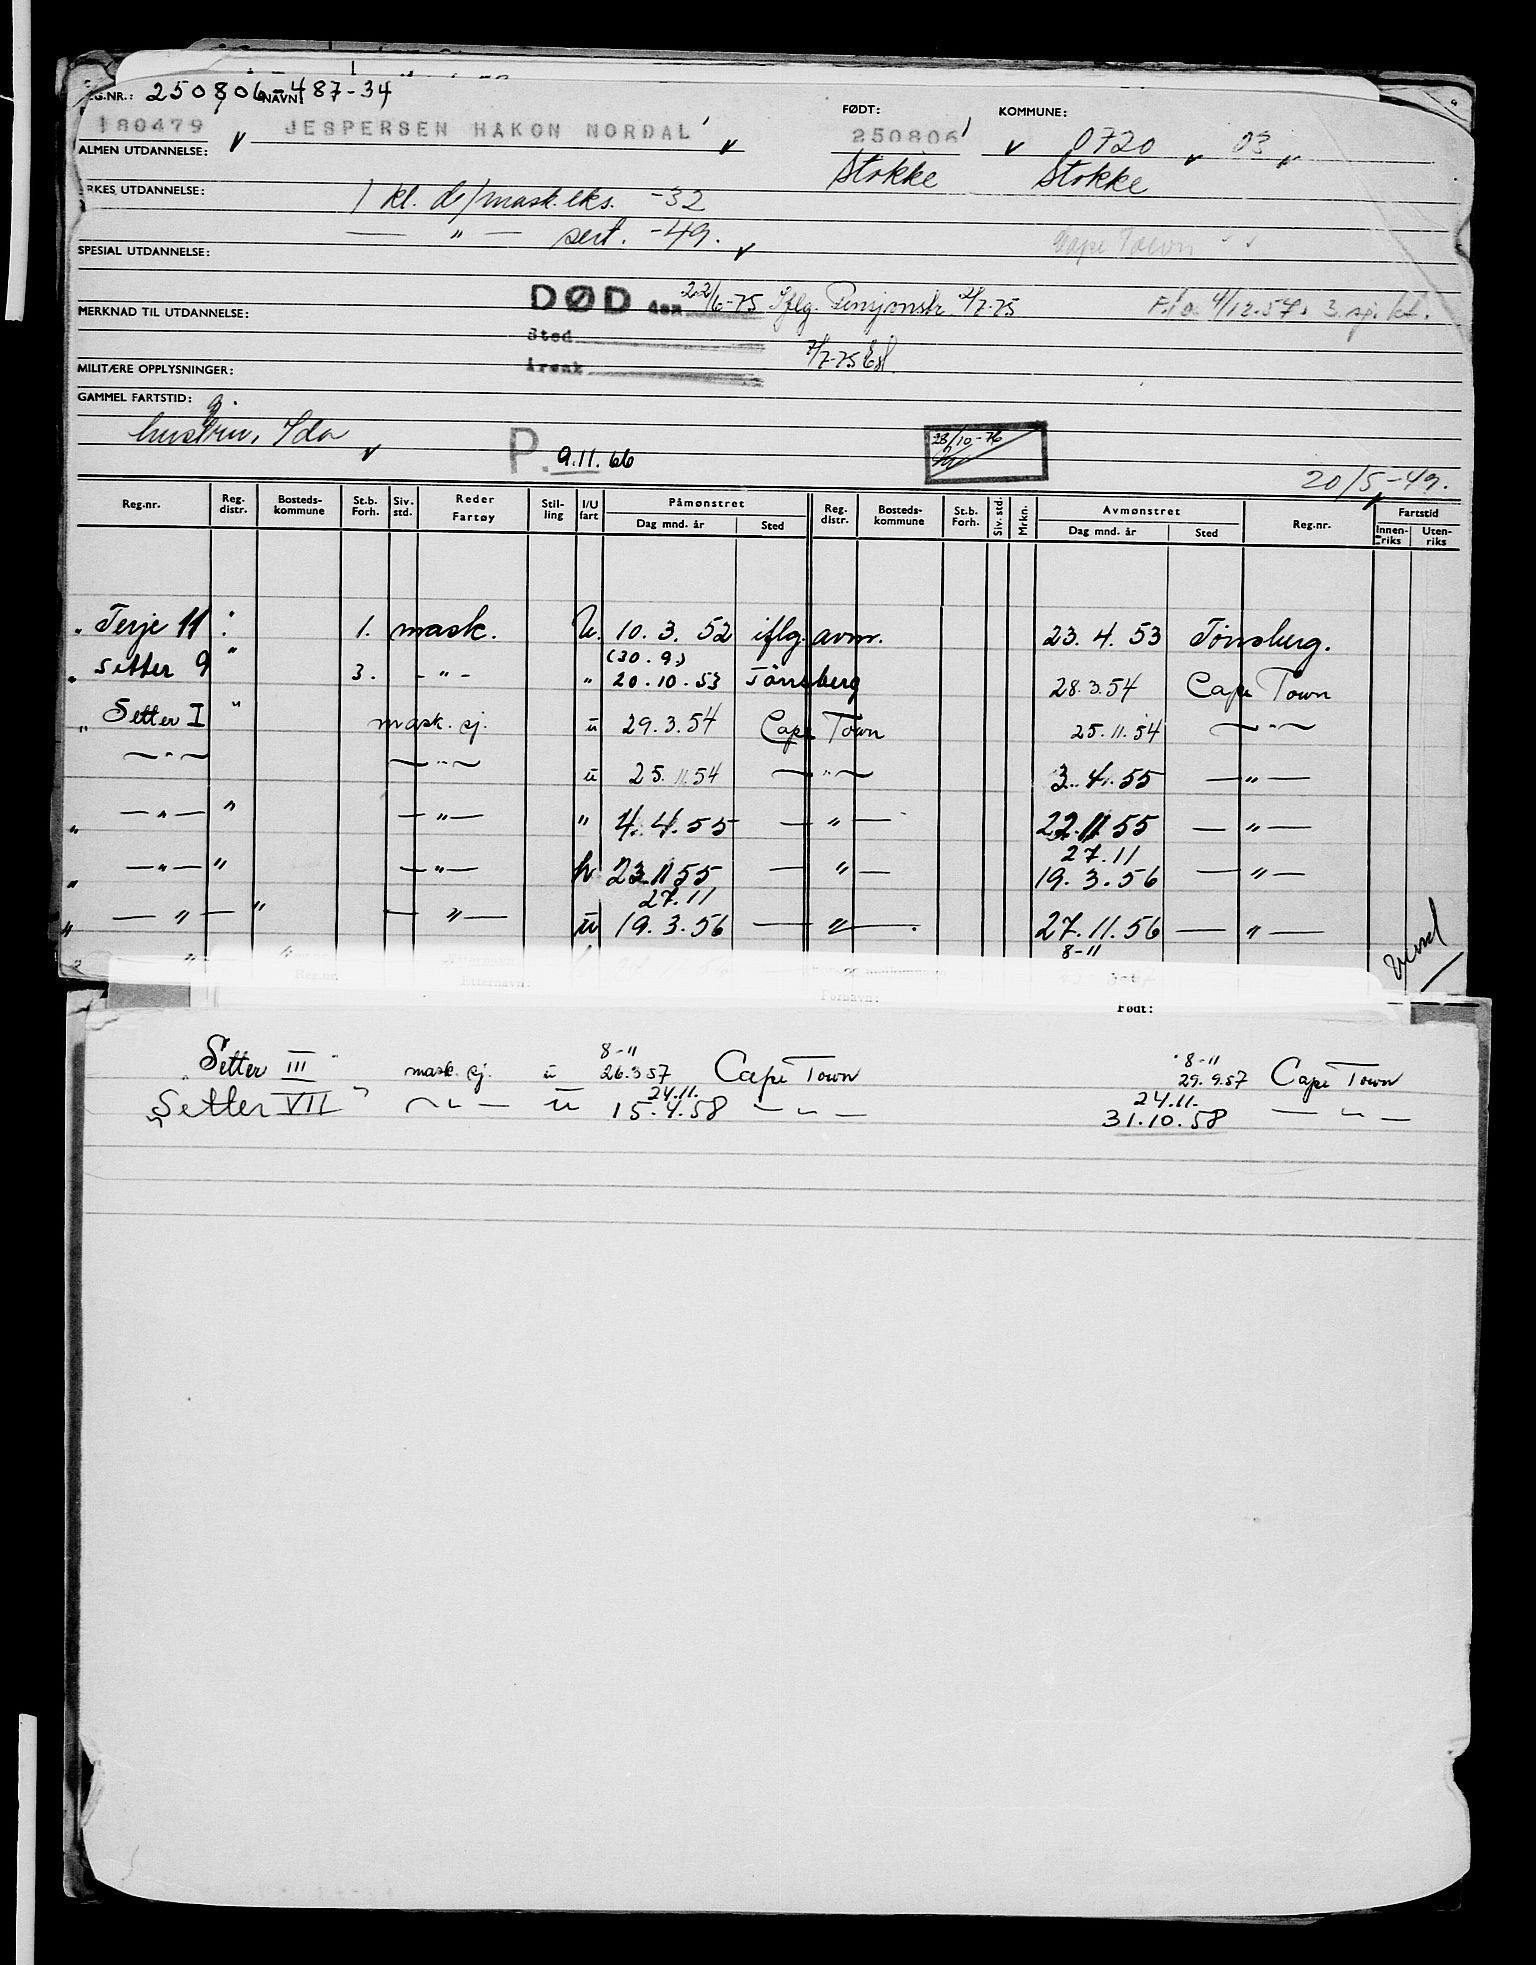 REG.NR.: 250806-487-34 NAVN:
180479 JESPERSEN HAKON NORDAL FØDT: 250806 KOMMUNE: 0720 03
ALMEN UTDANNELSE: Stokke Stokke
YRKES UTDANNELSE: 1 kl. d/mask.eks. -32
— " — sert. -49.
SPESIAL UTDANNELSE: Cape Town
DØD den 22/6-75 Iflg. Pensjonstr 2/7-75
MERKNAD TIL UTDANNELSE: F.l.a. 4/12.57. 3. sj. kl.
Sted
7/7-75
Årsak
MILITÆRE OPPLYSNINGER:
GAMMEL FARTSTID: g.
hustru, Ida
P. 9.11.66
28/10-76
20/5-49.
Reg.nr. Reg. distr. Bosteds- kommune St.b. Forh. Siv. std. Reder Fartøy Stil- ling I/U fart Påmønstret Dag mnd. år Sted Reg. distr. Bosteds- kommune St.b. Forh. Siv. std. Mrkn. Avmønstret Dag mnd. år Sted Reg.nr. Fartstid Innen- riks Uten- riks
" Terje 11 " 1. mask. u. 10. 3. 52 iflg. avm. 23. 4. 53 Tønsberg.
(30.9.)
" Setter 9 " 3. - " - " 20.10.53 Tønsberg 28.3.54 Cape Town
" Setter I " mask. sj. u 29.3.54 Cape Town 25.11.54 — " —
— " — — " — u 25.11.54 — " — 3.4.55 — " —
" — " — " — " — " 4.4.55 — " — 22.11 55 — " —
27.11
" — " — " — " — h 23.11 55 — " — 19.3.56 — " —
27.11
" — " — " — " — u 19.3.56 — " — 27.11.56 — " —
8-11
vend
Fornavn:
Født:
8-11 8-11
"Setter III" mask. sj. u 26.3 57 Cape Town 29.9.57 Cape Town
24.11. 24.11.
"Setter VII" — " — u 15.4.58 — " — 31.10.58 — " —